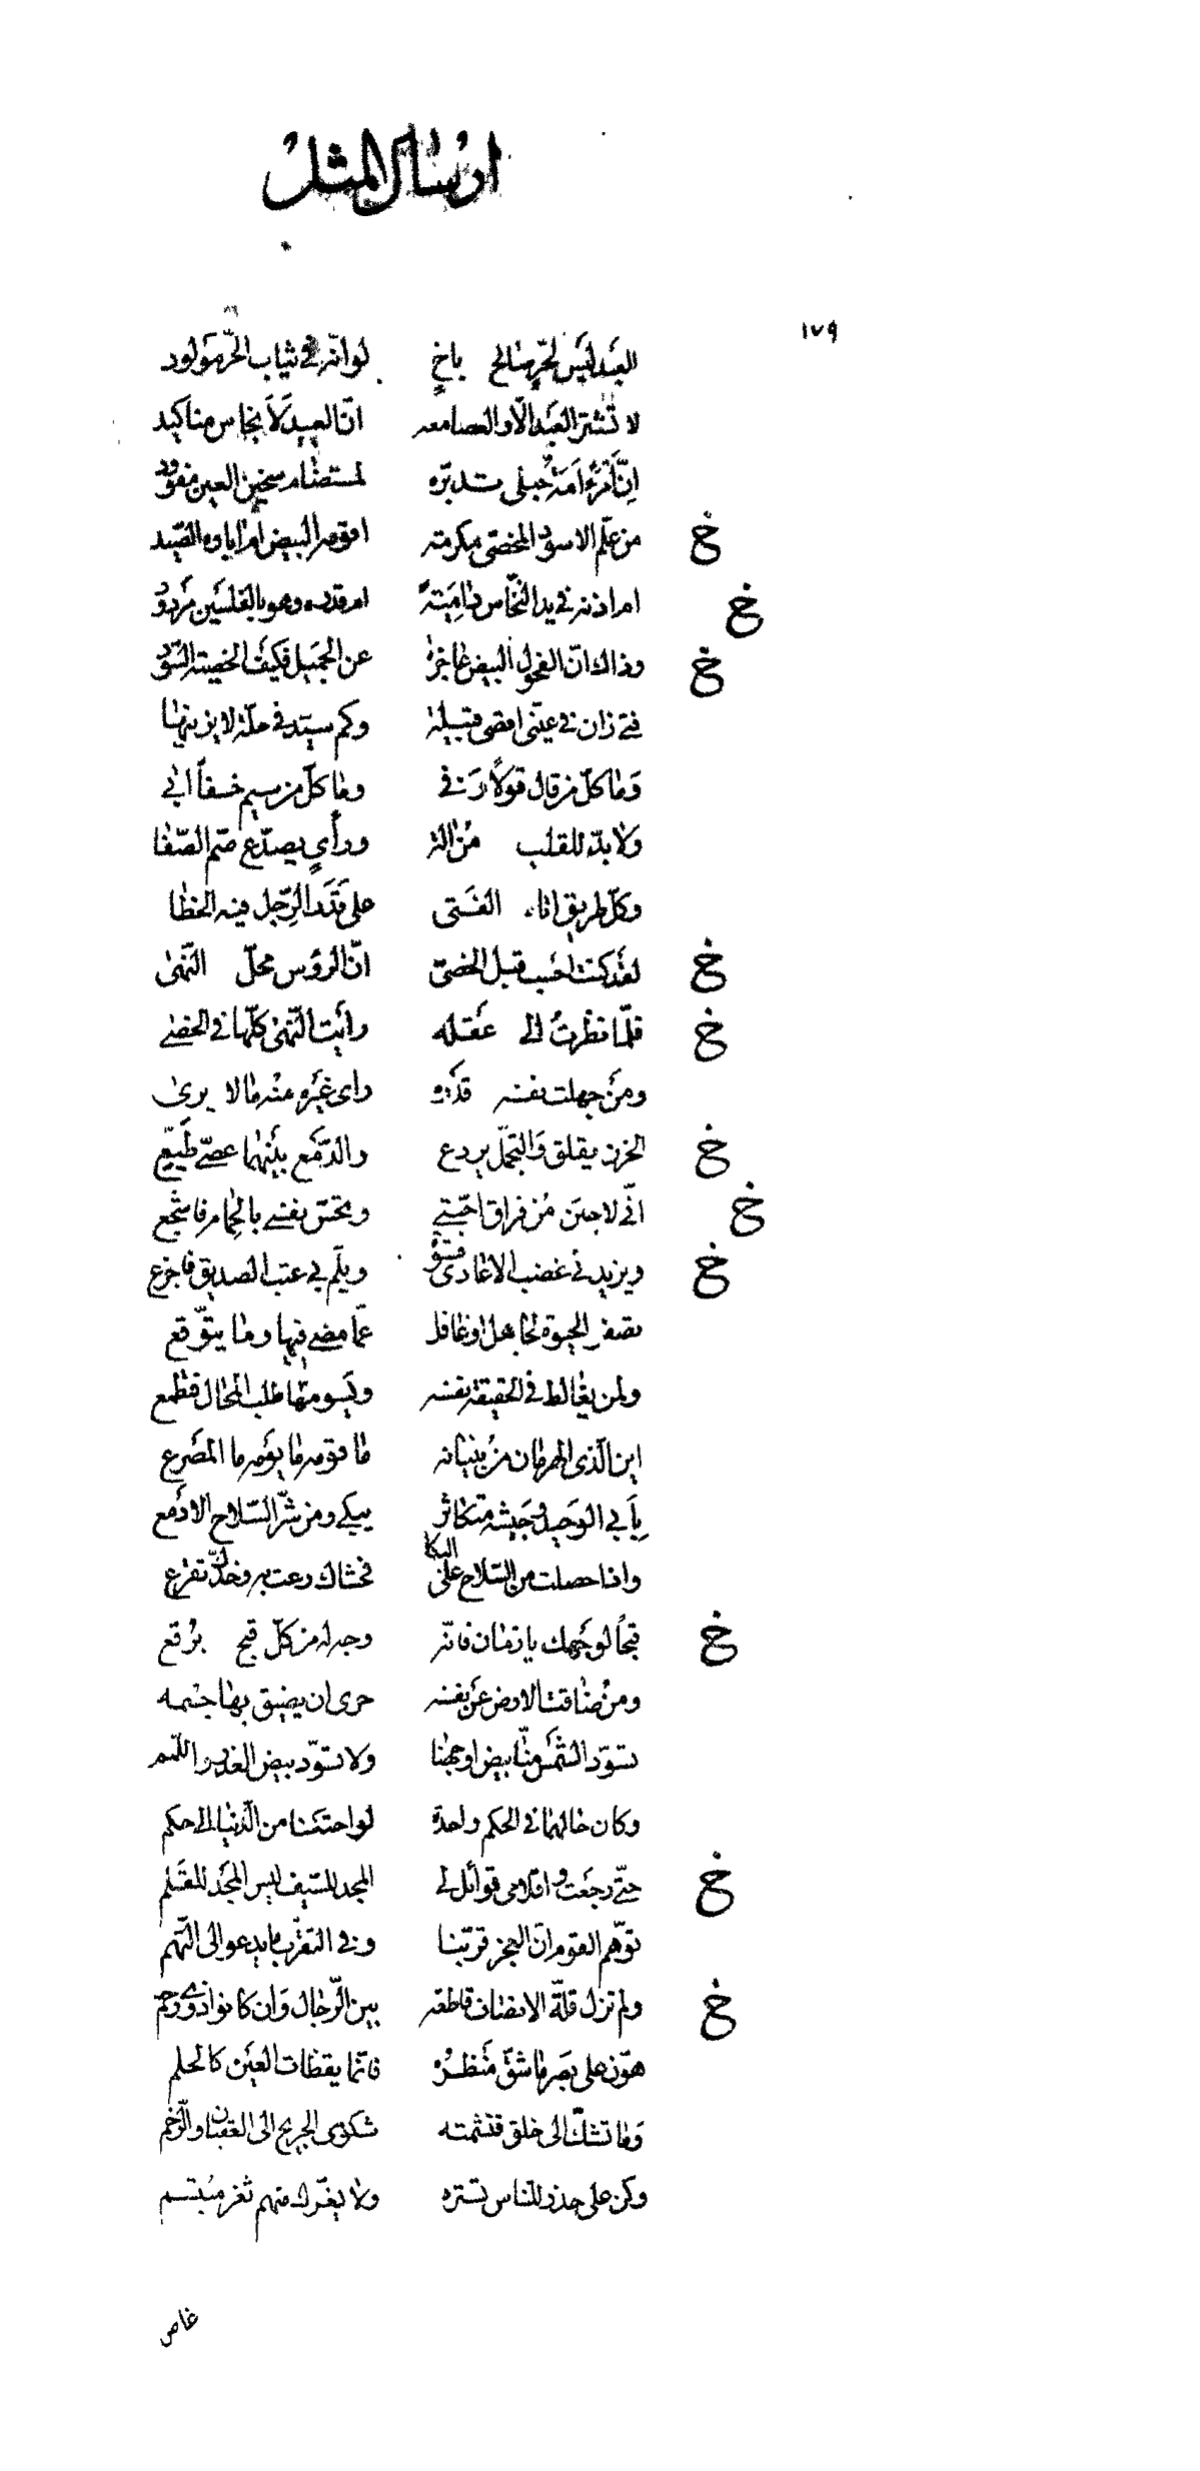 ارسال المثل
١٧٩
العبد ليس لحرّ صالح باخٍ لو انّه فى ثياب الحرّ مولود
لا تشتر العبد الّا والعصا معه انّ العبيد لَاَنجاس مناكيد
انّ امرء امة حبلى تدبّره لمستضام سخين العين مفؤد
خ من علّم الاسود المخصى مكرمة اقومه البيض ام اباوه الصّيد
خ ام اذنه فى يد النخّاس دامية ام قدره وهو بالفلسين مردود
خ وذاك انّ الفحول البيض عاجزة عن الجميل فكيف الخصية السّود
فتى زان فى عينى اقصى قبيلة وكم سيّد فى حلّة لا يزينها
وما كلّ من قال قولا وفى وما كلّ من سيم خسفا ابى
ولا بدّ للقلب من الة وراىٍ يصدّع صمّ الصّفا
وكلّ طريق اتاه الفتى على قدر الرّجل فيه الخطا
خ لقد كنت احسب قبل الخصىّ انّ الرؤس محلّ النّهى
خ فلمّا نظرت الى عقله رايت النّهى كلّها فى الخصى
ومن جهلت نفسه قدره راى غيره منه ما لا يرى
خ الحزن يقلق والتجمّل يردع والدّمع بينهما عصىّ طيّع
خ انّى لاجبن من فراق احبّتى وتحسّ نفسى بالحمام فاشجع
خ ويزيدنى غضب الاعادى قسوة ويلمّ بى عتب الصديق فاجزع
تصفو الحيوة لجاهل او غافل عمّا مضى فيها وما يتوقّع
ولمن يغالط فى الحقيقة نفسه ويسومها طلب المحال فتطمع
اين الّذى الهرمان من بنيانه ما قومه ما يومه ما المصرع
بابى الوحيد وجيشه متكاثر يبكى ومن شرّ السّلاح الادمع
واذا حصلت من السّلاح على البكا فحشاك رعت به وخدّك تقرع
خ قبحا لوجهك يا زمان فانّه وجه له من كلّ قبح برقع
ومن ضاقت الارض عن نفسه حرى ان يضيق بها جسمه
تسوّد الشمس منّا بيض اوجهنا ولا تسوّد بيض العذر واللمم
وكان حالهما فى الحكم واحدة لو احتكمنا من الدّنيا الى حكم
خ حتّى رجعت واقلامى قوائل لى المجد للسّيف ليس المجد للقلم
توهّم القوم انّ العجز قرّبنا وفى التقرّب ما يدعو الى التّهم
خ ولم تزل قلّة الانصاف قاطعة بين الرّجال وان كانوا ذوى رحم
هوّن على بصر ما شقّ منظره فانّما يقظات العين كالحلم
وما تشكّ الى خلق فتشمته شكوى الجريح الى العقبان والرّخم
وكن على حذر للناس تستره ولا يغرّك منهم ثغر مبتسم
غاص